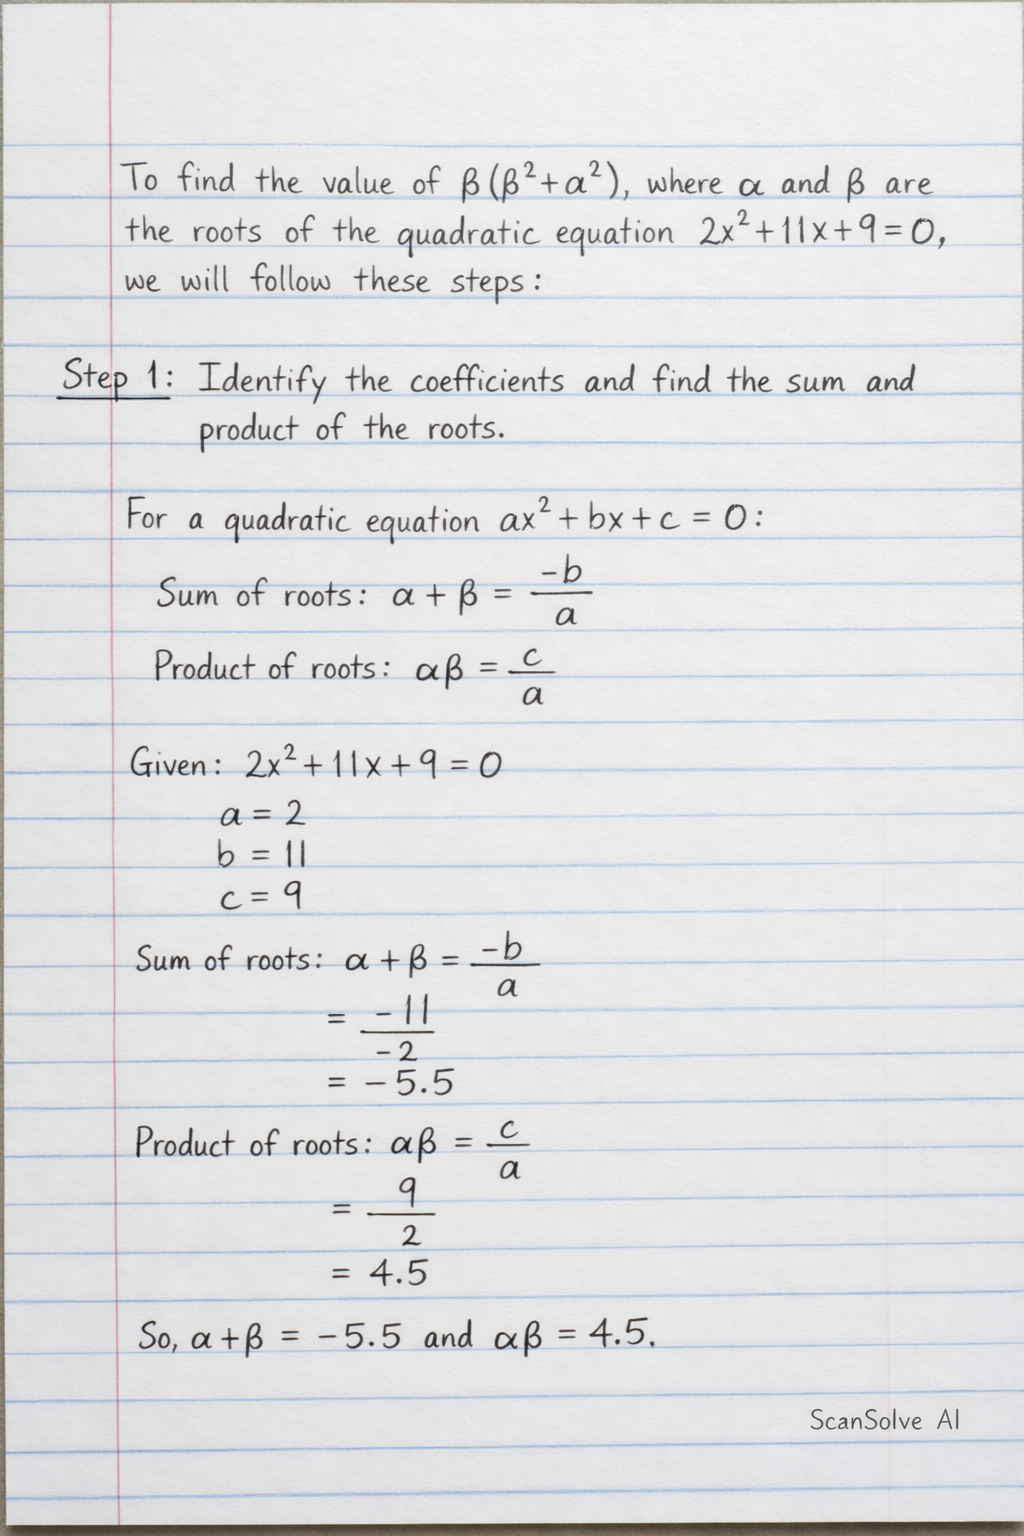 To find the value of β(β²+α²), where α and β are
the roots of the quadratic equation 2x²+11x+9=0,
we will follow these steps:
Step 1: Identify the coefficients and find the sum and
product of the roots.
For a quadratic equation ax²+bx+c = 0:
Sum of roots: α + β = -b/a
Product of roots: αβ = c/a
Given: 2x²+11x+9=0
a = 2
b = 11
c = 9
Sum of roots: α + β = -b/a
= -11/-2
= -5.5
Product of roots: αβ = c/a
= 9/2
= 4.5
So, α+β = -5.5 and αβ = 4.5.
ScanSolve AI